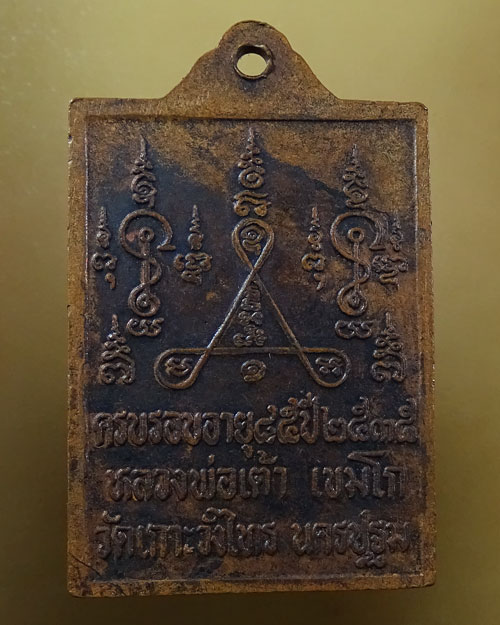 ครบรอบอายุ๔๕ปี๒๕๓๕
หลวงพ่อเต้า เขมโก
วัดเกาะวังไทร นครปฐม